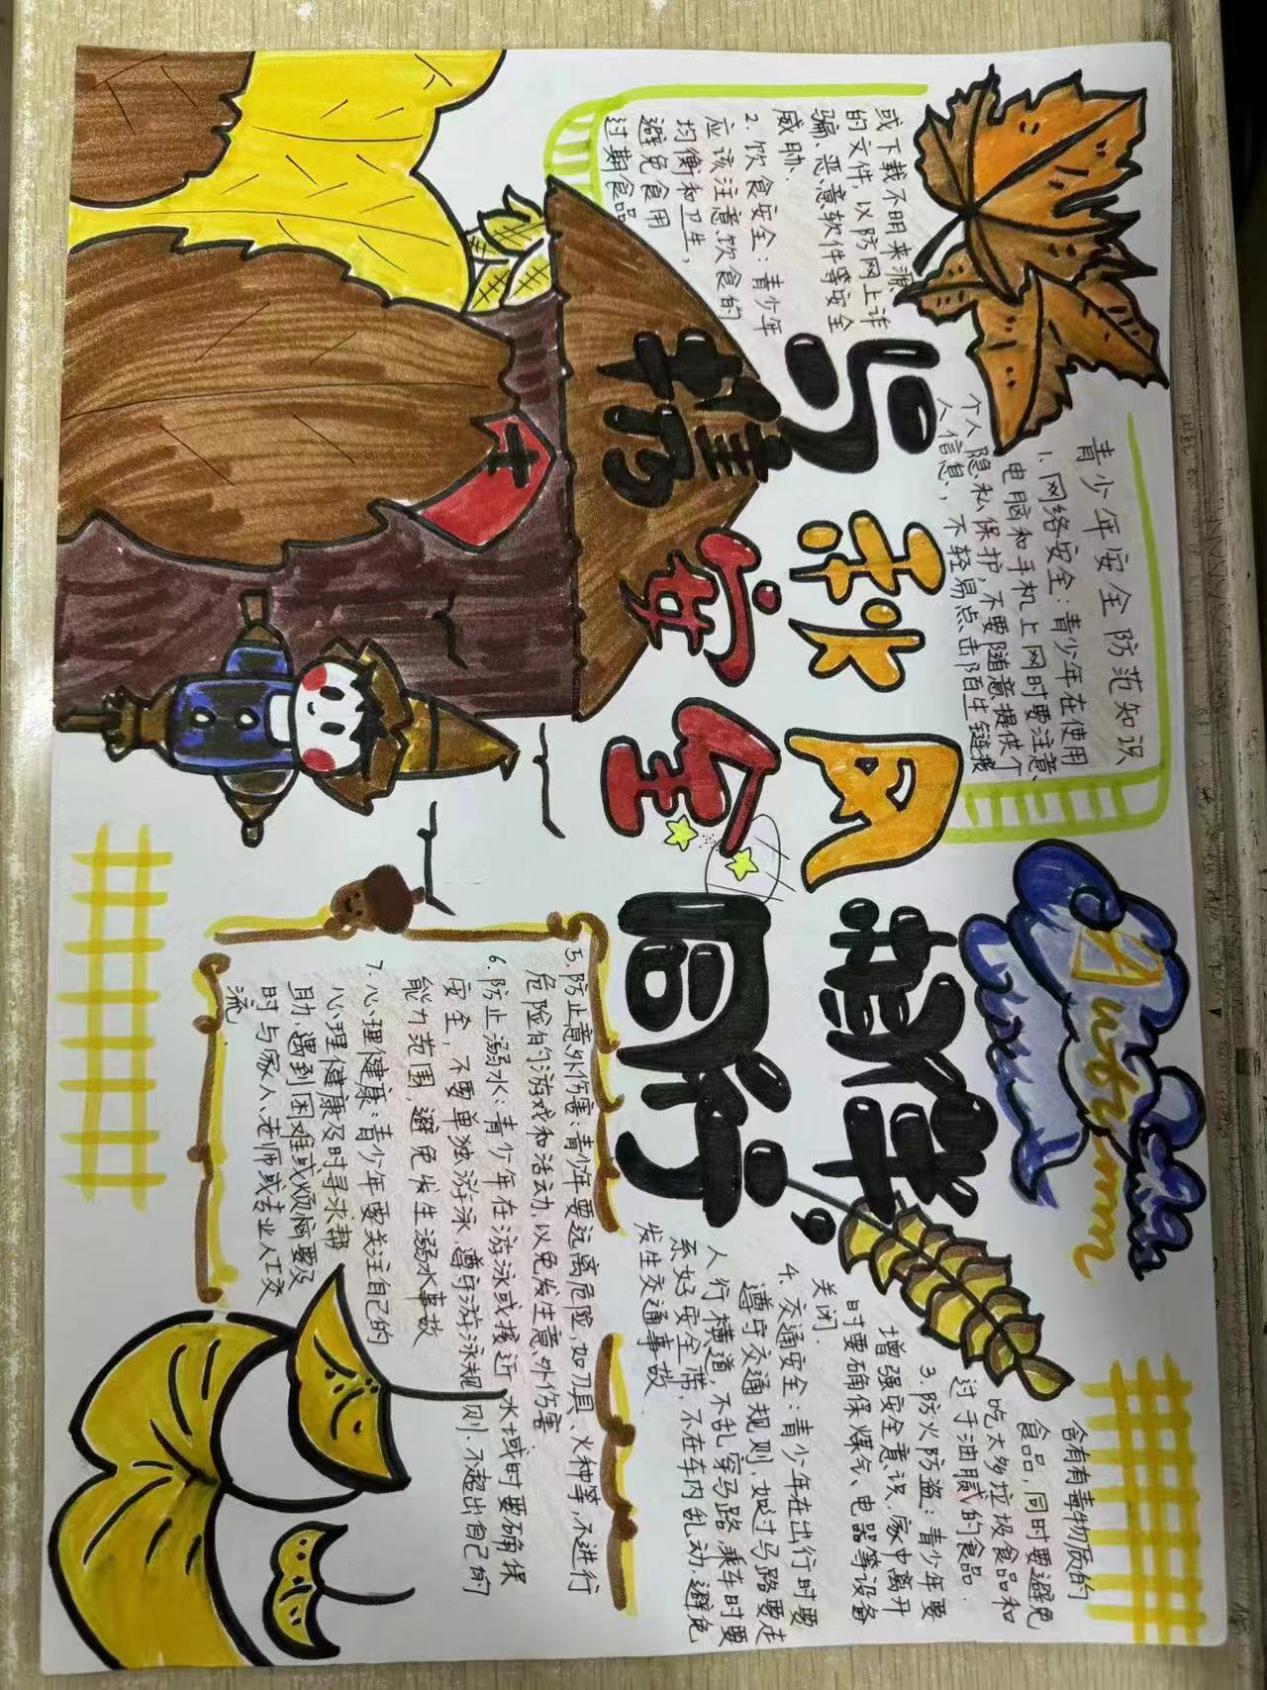 与秋日相伴
携安全同行
Autumn
青少年安全防范知识
1. 网络安全：青少年在使用
电脑和手机上网时要注意
个人隐私保护，不要随意提供个
人信息，不轻易点击陌生链接
或下载不明来源
的文件，以防网上诈
骗、恶意软件等安全
威胁．
2. 饮食安全：青少年
应该注意饮食的
均衡和卫生，
避免食用
过期食品
含有有毒物质的
食品，同时要避免
吃太多垃圾食品和
过于油腻的食品．
3. 防火防盗：青少年要
增强安全意识，家中离开
时要确保煤气、电器等设备
关闭．
4. 交通安全：青少年在出行时要
遵守交通规则，如过马路要走
人行横道，不乱穿马路，乘车时要
系好安全带，不在车内乱动，避免
发生交通事故．
5. 防止意外伤害：青少年要远离危险，如刀具、火种等，不进行
危险的游戏和活动，以免发生意外伤害．
6. 防止溺水：青少年在游泳或接近水域时要确保
安全，不要单独游泳，遵守游泳规则，不超出自己的
能力范围，避免发生溺水事故
7. 心理健康：青少年要关注自己的
心理健康及时寻求帮
助，遇到困难或烦恼要及
时与家人、老师或专业人工交
流